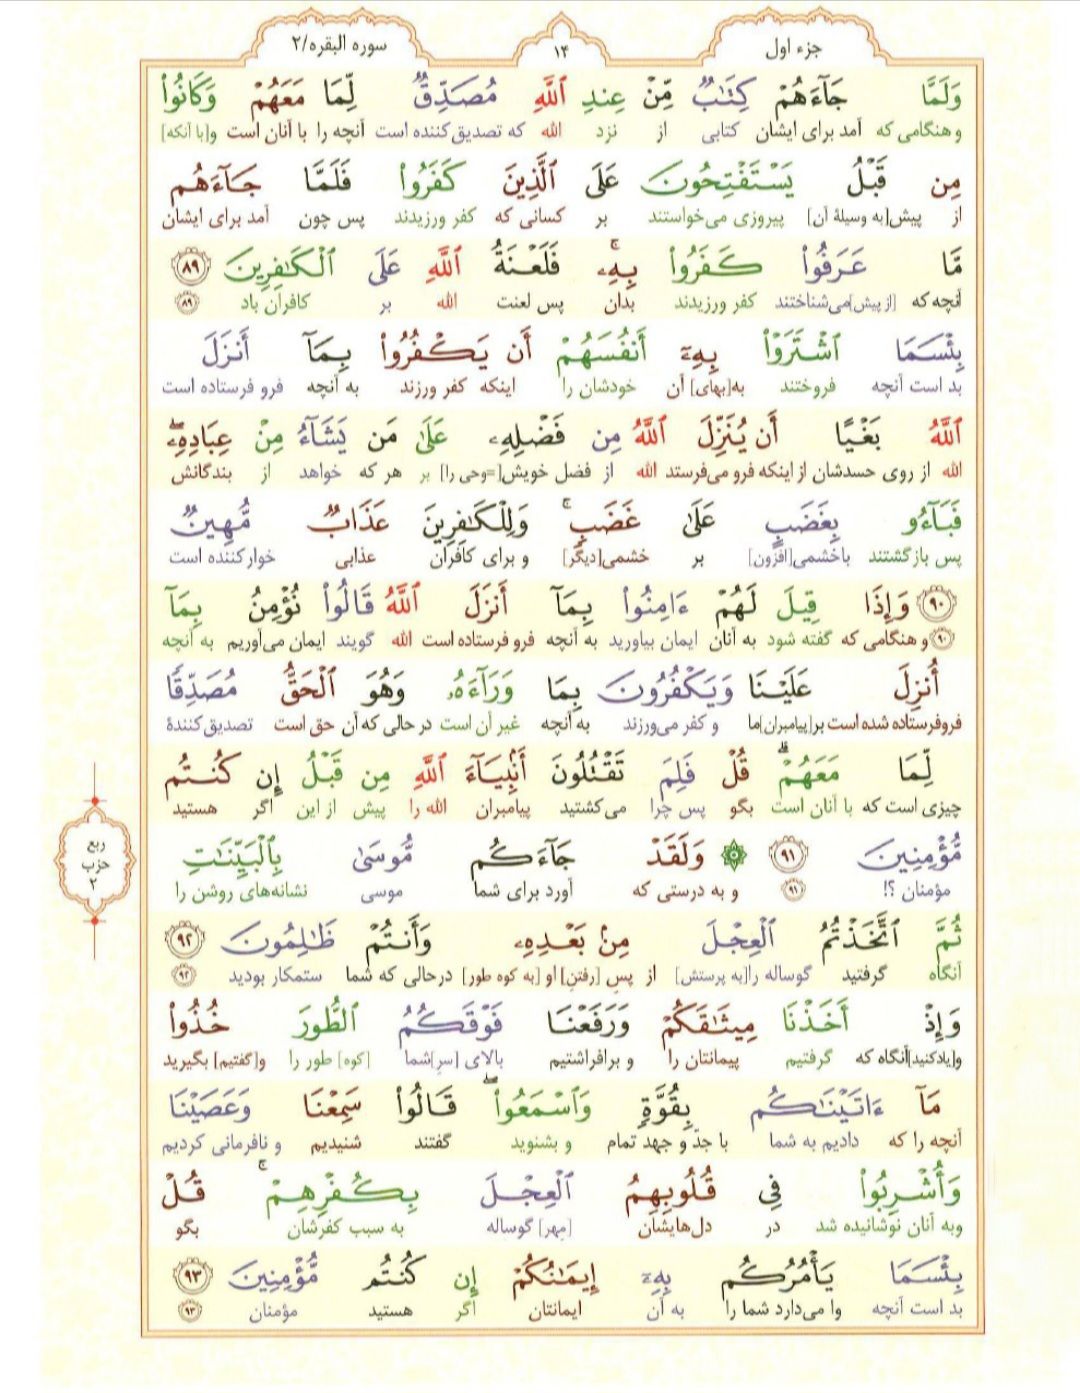 جزء اول
۱۴
سوره البقره/۲
وَلَمَّا جَآءَهُمْ كِتَٰبٌ مِّنْ عِندِ ٱللَّهِ مُصَدِّقٌ لِّمَا مَعَهُمْ وَكَانُوا۟
و هنگامی که آمد برای ایشان کتابی از نزد الله که تصدیق کننده است آنچه را با آنان است و[با آنکه]
مِن قَبْلُ يَسْتَفْتِحُونَ عَلَى ٱلَّذِينَ كَفَرُوا۟ فَلَمَّا جَآءَهُم
از پیش[به وسیلهٔ آن] پیروزی می‌خواستند بر کسانی که کفر ورزیدند پس چون آمد برای ایشان
مَّا عَرَفُوا۟ كَفَرُوا۟ بِهِۦ ۚ فَلَعْنَةُ ٱللَّهِ عَلَى ٱلْكَٰفِرِينَ ۸۹
آنچه که [از پیش]می‌شناختند کفر ورزیدند بدان پس لعنت الله بر کافران باد ۸۹
بِئْسَمَا ٱشْتَرَوْا۟ بِهِۦٓ أَنفُسَهُمْ أَن يَكْفُرُوا۟ بِمَآ أَنزَلَ
بد است آنچه فروختند به[بهای] آن خودشان را اینکه کفر ورزند به آنچه فرو فرستاده است
ٱللَّهُ بَغْيًا أَن يُنَزِّلَ ٱللَّهُ مِن فَضْلِهِۦ عَلَىٰ مَن يَشَآءُ مِنْ عِبَادِهِۦ ۖ
الله از روی حسدشان از اینکه فرو می‌فرستد الله از فضل خویش[=وحی را] بر هر که خواهد از بندگانش
فَبَآءُو بِغَضَبٍ عَلَىٰ غَضَبٍ ۚ وَلِلْكَٰفِرِينَ عَذَابٌ مُّهِينٌ
پس بازگشتند باخشمی[افزون] بر خشمی[دیگر] و برای کافران عذابی خوارکننده است
۹۰ وَإِذَا قِيلَ لَهُمْ ءَامِنُوا۟ بِمَآ أَنزَلَ ٱللَّهُ قَالُوا۟ نُؤْمِنُ بِمَآ
۹۰ و هنگامی که گفته شود به آنان ایمان بیاورید به آنچه فرو فرستاده است الله گویند ایمان می‌آوریم به آنچه
أُنزِلَ عَلَيْنَا وَيَكْفُرُونَ بِمَا وَرَآءَهُۥ وَهُوَ ٱلْحَقُّ مُصَدِّقًا
فروفرستاده شده است بر[پیامبران]ما و کفر می‌ورزند به آنچه غیر آن است در حالی که آن حق است تصدیق کنندهٔ
لِّمَا مَعَهُمْ ۗ قُلْ فَلِمَ تَقْتُلُونَ أَنۢبِيَآءَ ٱللَّهِ مِن قَبْلُ إِن كُنتُم
چیزی است که با آنان است بگو پس چرا می‌کشتید پیامبران الله را پیش از این اگر هستید
مُّؤْمِنِينَ ۹۱ وَلَقَدْ جَآءَكُم مُّوسَىٰ بِٱلْبَيِّنَٰتِ
مؤمنان ؟! ۹۱ و به درستی که آورد برای شما موسی نشانه‌های روشن را
ثُمَّ ٱتَّخَذْتُمُ ٱلْعِجْلَ مِنۢ بَعْدِهِۦ وَأَنتُمْ ظَٰلِمُونَ ۹۲
آنگاه گرفتید گوساله را[به پرستش] از پس [رفتن] او [به کوه طور] درحالی که شما ستمکار بودید ۹۲
وَإِذْ أَخَذْنَا مِيثَٰقَكُمْ وَرَفَعْنَا فَوْقَكُمُ ٱلطُّورَ خُذُوا۟
و[یادکنید]آنگاه که گرفتیم پیمانتان را و برافراشتیم بالای [سر]شما [کوه] طور را و[گفتیم] بگیرید
مَآ ءَاتَيْنَٰكُم بِقُوَّةٍ وَٱسْمَعُوا۟ ۖ قَالُوا۟ سَمِعْنَا وَعَصَيْنَا
آنچه را که دادیم به شما با جدّ و جهد تمام و بشنوید گفتند شنیدیم و نافرمانی کردیم
وَأُشْرِبُوا۟ فِى قُلُوبِهِمُ ٱلْعِجْلَ بِكُفْرِهِمْ ۚ قُلْ
وبه آنان نوشانیده شد در دل‌هایشان [مِهر] گوساله به سبب کفرشان بگو
بِئْسَمَا يَأْمُرُكُم بِهِۦٓ إِيمَٰنُكُمْ إِن كُنتُم مُّؤْمِنِينَ ۹۳
بد است آنچه وا می‌دارد شما را به آن ایمانتان اگر هستید مؤمنان ۹۳
ربع
حزب
۲